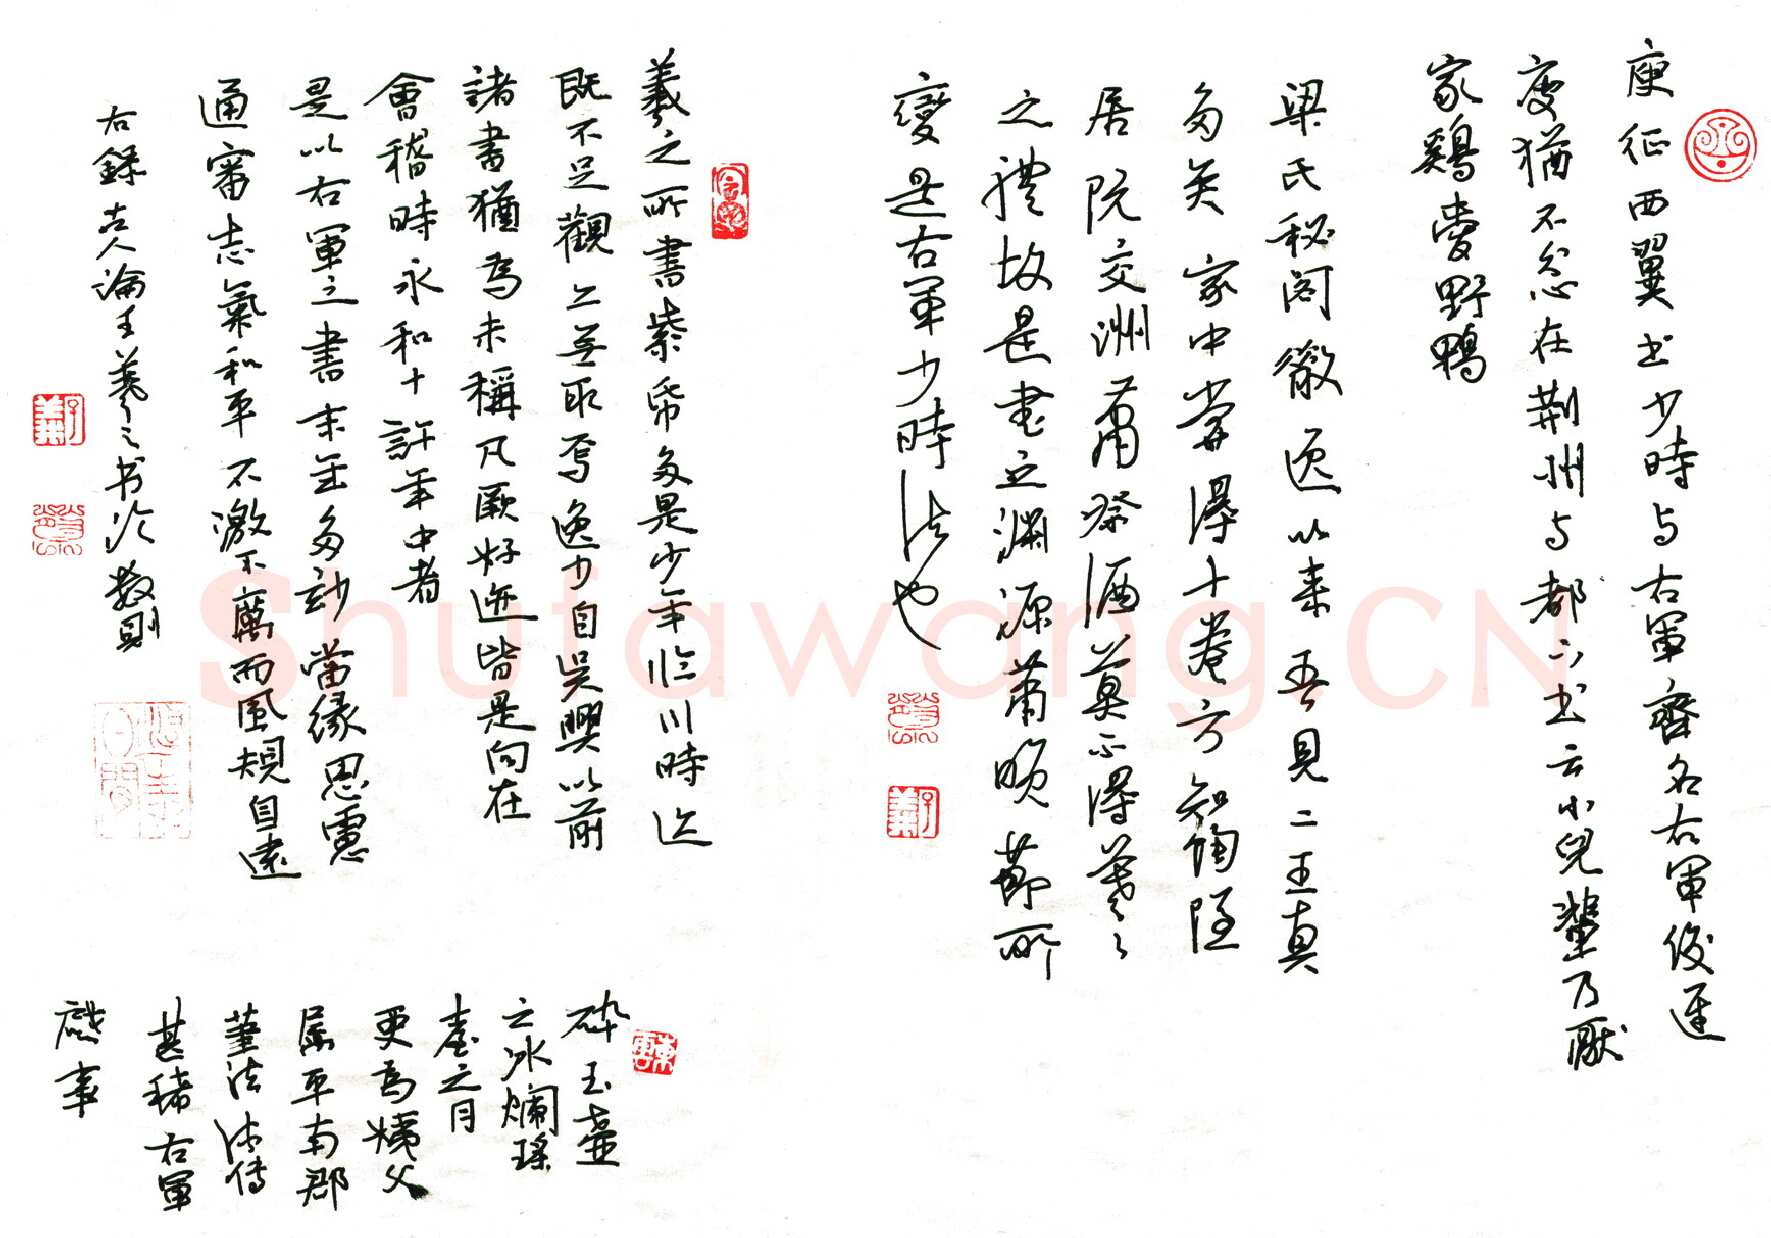 庾征西翼书少时与右軍齊名右軍後進
庾猶不忿在荆州与都下书云小兒輩乃厭
家鷄愛野鴨
梁氏秘阁徵逸以来吾見二王真
多矣家中嘗得十卷方知陶隐
居阮交洲蕭祭酒莫不得羲之
之體故是書之渊源蕭晚節所
變是右军少時法也
羲之所書紫帋多是少年临川時迹
既不足觀亦無取焉逸少自吴興以前
諸書猶為未稱凡厥好迹皆是向在
會稽時永和十許年中者
是以右軍之書末年多妙當缘思慮
通審志氣和平不激不厲而風規自遠
右録古人論王羲之书於数則
碎玉壶
之冰爛瑶
臺之月
更為姨父
屈平南郡
筆法法传
甚稀右軍
歷事
Shufawang.CN